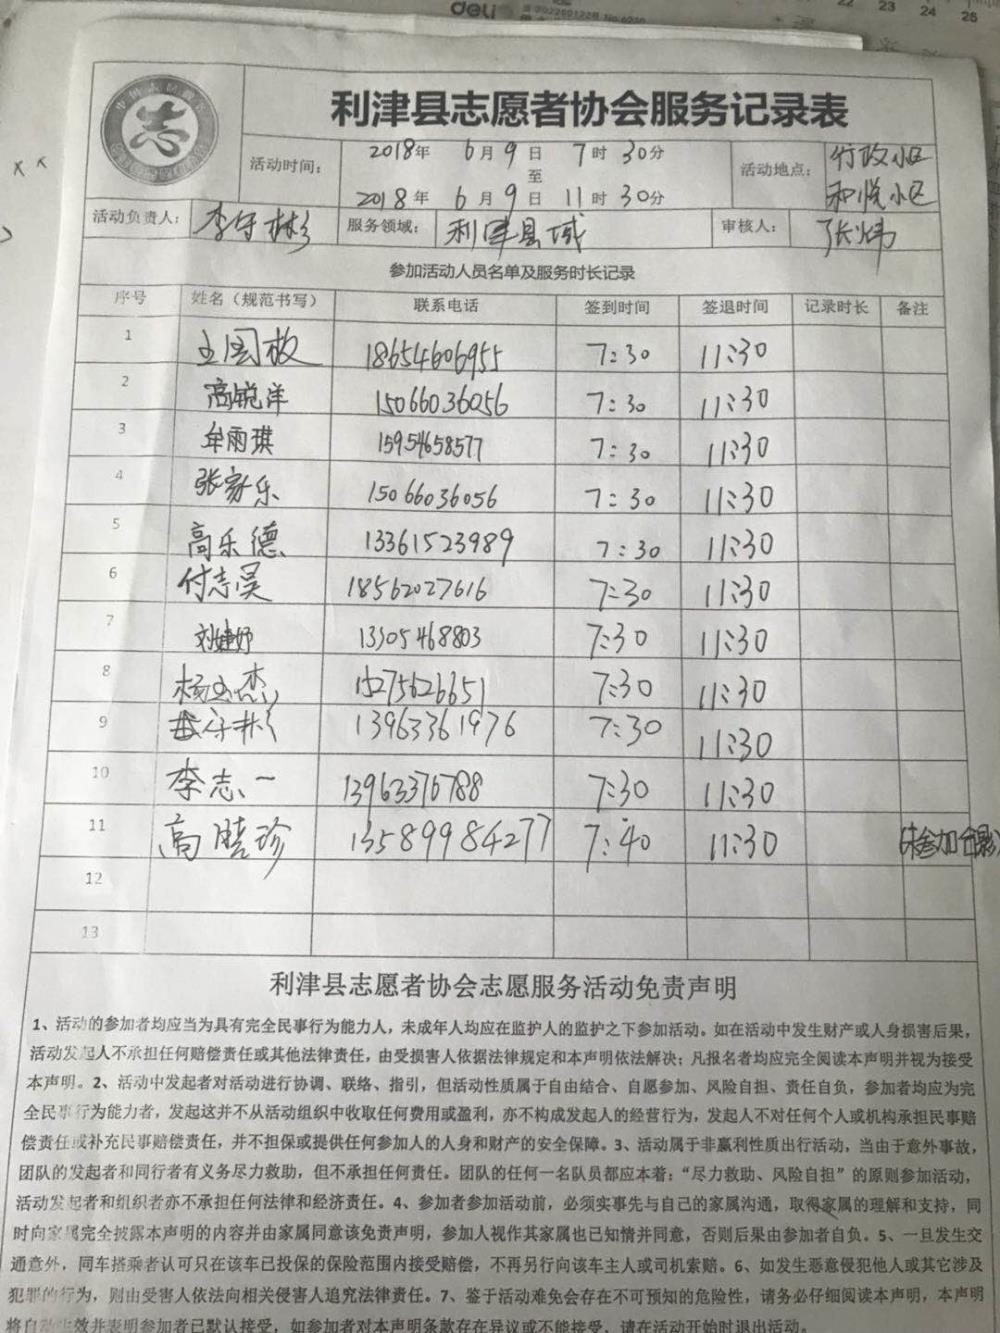 deli
22 23 24 25
志
利津县志愿者协会服务记录表
活动时间: 2018年 6月9日 7时30分
至
2018年 6月9日 11时30分
活动地点: 行政小区
和悦小区
活动负责人: 李守彬 服务领域: 利津县域 审核人: 张炜
参加活动人员名单及服务时长记录
序号 姓名（规范书写） 联系电话 签到时间 签退时间 记录时长 备注
1 王国放 18654606955 7:30 11:30
2 高锐洋 15066036056 7:30 11:30
3 牟雨琪 15954658577 7:30 11:30
4 张家乐 15066036056 7:30 11:30
5 高乐德 13361523989 7:30 11:30
6 付志昊 18562027616 7:30 11:30
7 刘婕妤 13305468803 7:30 11:30
8 杨玉杰 15275626651 7:30 11:30
9 李守彬 13963361976 7:30 11:30
10 李志一 13963376788 7:30 11:30
11 高晓珍 13589984277 7:40 11:30 (未参加合影)
12
13
利津县志愿者协会志愿服务活动免责声明
1、活动的参加者均应当为具有完全民事行为能力人，未成年人均应在监护人的监护之下参加活动。如在活动中发生财产或人身损害后果，
活动发起人不承担任何赔偿责任或其他法律责任，由受损害人依据法律规定和本声明依法解决；凡报名者均应完全阅读本声明并视为接受
本声明。2、活动中发起者对活动进行协调、联络、指引，但活动性质属于自由结合、自愿参加、风险自担、责任自负，参加者均应为完
全民事行为能力者，发起这并不从活动组织中收取任何费用或盈利，亦不构成发起人的经营行为，发起人不对任何个人或机构承担民事赔
偿责任或补充民事赔偿责任，并不担保或提供任何参加人的人身和财产的安全保障。3、活动属于非赢利性质出行活动，当由于意外事故，
团队的发起者和同行者有义务尽力救助，但不承担任何责任。团队的任何一名队员都应本着：“尽力救助、风险自担”的原则参加活动，
活动发起者和组织者亦不承担任何法律和经济责任。4、参加者参加活动前，必须实事先与自己的家属沟通，取得家属的理解和支持，同
时向家属完全披露本声明的内容并由家属同意该免责声明，参加人视作其家属也已知情并同意，否则后果由参加者自负。5、一旦发生交
通意外，同车搭乘者认可只在该车已投保的保险范围内接受赔偿，不再另行向该车主人或司机索赔。6、如发生恶意侵犯他人或其它涉及
犯罪的行为，则由受害人依法向相关侵害人追究法律责任。7、鉴于活动难免会存在不可预知的危险性，请务必仔细阅读本声明，本声明
将自动生效并表明参加者已默认接受，如参加者对本声明条款存在异议或不能接受，请在活动开始时退出活动。